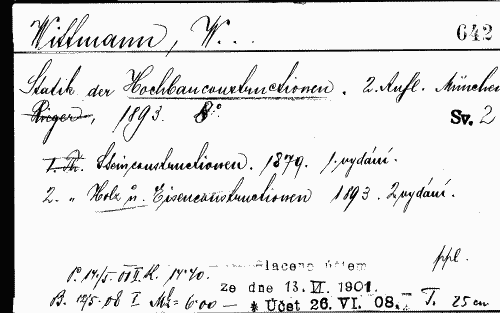 Wittmann, W... 642
Statik der Hochbauconstructionen. 2. Aufl. München
Rieger, 1893. 8°. Sv. 2
I. Th. Steinconstructionen. 1879. 1. vydání.
2. „ Holz u. Eisenconstructionen 1893. 2 vydání.
ppl.
placeno účtem
ze dne 13. VI. 1901.
B. 12/5 08 I Mk = 6·00 — * Účet 26. VI. 08. — T. 25 cm